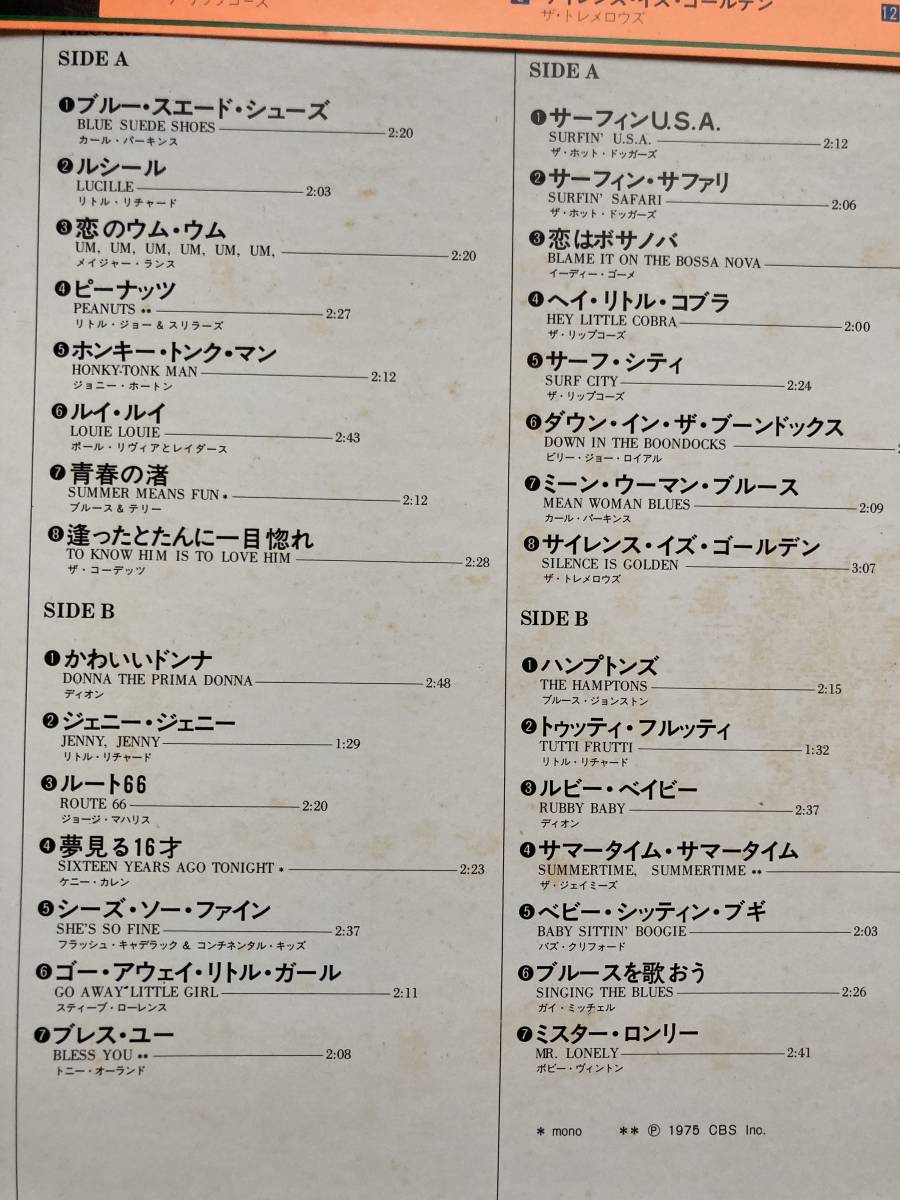 ザ・トレメロウズ
12
SIDE A
❶ブルー・スエード・シューズ
BLUE SUEDE SHOES 2:20
カール・パーキンス
❷ルシール
LUCILLE 2:03
リトル・リチャード
❸恋のウム・ウム
UM, UM, UM, UM, UM, UM, 2:20
メイジャー・ランス
❹ピーナッツ
PEANUTS ** 2:27
リトル・ジョー & スリラーズ
❺ホンキー・トンク・マン
HONKY-TONK MAN 2:12
ジョニー・ホートン
❻ルイ・ルイ
LOUIE LOUIE 2:43
ポール・リヴィアとレイダース
❼青春の渚
SUMMER MEANS FUN * 2:12
ブルース & テリー
❽逢ったとたんに一目惚れ
TO KNOW HIM IS TO LOVE HIM 2:28
ザ・コーデッツ
SIDE B
❶かわいいドンナ
DONNA THE PRIMA DONNA 2:48
ディオン
❷ジェニー・ジェニー
JENNY, JENNY 1:29
リトル・リチャード
❸ルート66
ROUTE 66 2:20
ジョージ・マハリス
❹夢見る16才
SIXTEEN YEARS AGO TONIGHT * 2:23
ケニー・カレン
❺シーズ・ソー・ファイン
SHE'S SO FINE 2:37
フラッシュ・キャデラック & コンチネンタル・キッズ
❻ゴー・アウェイ・リトル・ガール
GO AWAY LITTLE GIRL 2:11
スティーブ・ローレンス
❼ブレス・ユー
BLESS YOU ** 2:08
トニー・オーランド
SIDE A
❶サーフィンU.S.A.
SURFIN' U.S.A. 2:12
ザ・ホット・ドッガーズ
❷サーフィン・サファリ
SURFIN' SAFARI 2:06
ザ・ホット・ドッガーズ
❸恋はボサノバ
BLAME IT ON THE BOSSA NOVA
イーディー・ゴーメ
❹ヘイ・リトル・コブラ
HEY LITTLE COBRA 2:00
ザ・リップコーズ
❺サーフ・シティ
SURF CITY 2:24
ザ・リップコーズ
❻ダウン・イン・ザ・ブーンドックス
DOWN IN THE BOONDOCKS
ビリー・ジョー・ロイアル
❼ミーン・ウーマン・ブルース
MEAN WOMAN BLUES 2:09
カール・パーキンス
❽サイレンス・イズ・ゴールデン
SILENCE IS GOLDEN 3:07
ザ・トレメロウズ
SIDE B
❶ハンプトンズ
THE HAMPTONS 2:15
ブルース・ジョンストン
❷トゥッティ・フルッティ
TUTTI FRUTTI 1:32
リトル・リチャード
❸ルビー・ベイビー
RUBBY BABY 2:37
ディオン
❹サマータイム・サマータイム
SUMMERTIME, SUMMERTIME **
ザ・ジェイミーズ
❺ベビー・シッティン・ブギ
BABY SITTIN' BOOGIE 2:03
バズ・クリフォード
❻ブルースを歌おう
SINGING THE BLUES 2:26
ガイ・ミッチェル
❼ミスター・ロンリー
MR. LONELY 2:41
ボビー・ヴィントン
* mono ** Ⓟ 1975 CBS Inc.